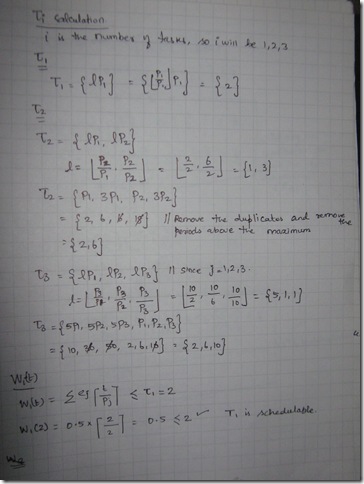 τi calculation
i is the number of tasks, so i will be 1,2,3
τ1
τ1 = {lP1} = {⌊P1/P1⌋P1} = {2}
τ2
τ2 = {lP1, lP2}
l = ⌊P2/P1, P2/P2⌋ = ⌊2/2, 6/2⌋ = {1, 3}
τ2 = {P1, 3P1, P2, 3P2}
= {2, 6, 6, 18} // Remove the duplicates and remove the periods above the maximum
= {2,6}
τ3 = {lP1, lP2, lP3} // since j=1,2,3.
l = ⌊P3/P1, P3/P2, P3/P3⌋ = ⌊10/2, 10/6, 10/10⌋ = {5,1,1}
τ3 = {5P1, 5P2, 5P3, P1, P2, P3}
= {10, 30, 50, 2, 6, 10} = {2,6,10}
W1(t)
W1(t) = Σ ej ⌈t/Pj⌉ ≤ τ1 = 2
W1(2) = 0.5 × ⌈2/2⌉ = 0.5 ≤ 2 ✓ T1 is schedulable.